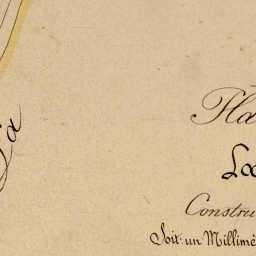 Pla
La
Constru
Soit: un Millimè